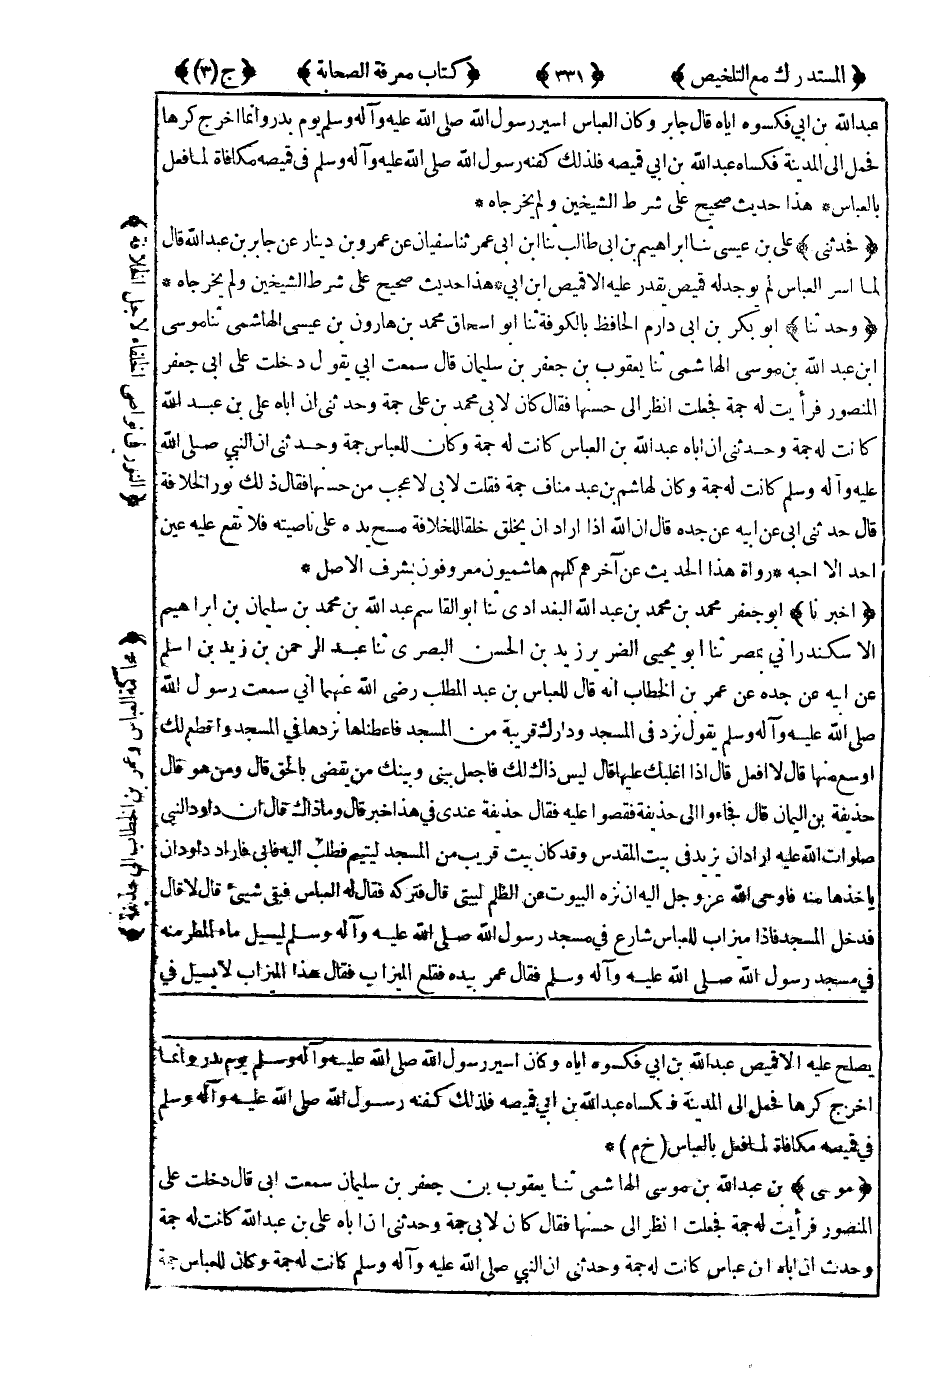 ﴿ المستدرك مع التلخيص ﴾ ﴿ ٣٣١ ﴾ ﴿ كتاب معرفة الصحابة ﴾ ﴿ ج (٣) ﴾
عبدالله بن ابي فكسوه اياه قال جابر وكان العباس اسير رسول الله صلى الله عليه وآله وسلم يوم بدر وانما اخرج كرها
فحمل الى المدينة فكساه عبدالله بن ابي قميصه فلذلك كفنه رسول الله صلى الله عليه وآله وسلم في قميصه مكافاة لما فعل
بالعباس * هذا حديث صحيح على شرط الشيخين ولم يخرجاه *
﴿ فحدثنى ﴾ على بن عيسى ثنا ابراهيم بن ابى طالب ثنا ابن ابى عمر ثنا سفيان عن عمرو بن دينار عن جابر بن عبدالله قال
لما اسر العباس لم يوجد له قميص يقدر عليه الا قميص ابن ابي * هذا حديث صحيح على شرط الشيخين ولم يخرجاه *
﴿ وحدثنا ﴾ ابو بكر بن ابى دارم الحافظ بالكوفة ثنا ابو اسحاق محمد بن هارون بن عيسى الهاشمى ثنا موسى
ابن عبد الله بن موسى الهاشمى ثنا يعقوب بن جعفر بن سليمان قال سمعت ابي يقول دخلت على ابى جعفر
المنصور فرأيت له جمة فجعلت انظر الى حسنها فقال كان لابى محمد بن على جمة وحدثنى ان اباه على بن عبد الله
كانت له جمة وحدثنى ان اباه عبدالله بن العباس كانت له جمة وكان للعباس جمة وحدثنى ان النبي صلى الله
عليه وآله وسلم كانت له جمة وكان لهاشم بن عبد مناف جمة فقلت لابى لا عجب من حسنها فقال ذلك نور الخلافة
قال حدثنى ابى عن ابيه عن جده قال ان الله اذا اراد ان يخلق خلقا للخلافة مسح يده على ناصيته فلا تقع عليه عين
احد الا احبه * رواة هذا الحديث عن آخرهم كلهم هاشميون معروفون بشرف الاصل *
﴿ اخبرنا ﴾ ابو جعفر محمد بن محمد بن عبد الله البغدادى ثنا ابو القاسم عبد الله بن محمد بن سليمان بن ابراهيم
الاسكندراني بمصر ثنا ابو يحيى الضرير زيد بن الحسن البصرى ثنا عبد الرحمن بن زيد بن اسلم
عن ابيه عن جده عن عمر بن الخطاب انه قال للعباس بن عبد المطلب رضى الله عنهما أني سمعت رسول الله
صلى الله عليه وآله وسلم يقول نزد فى المسجد ودارك قريبة من المسجد فاعطناها نزدها في المسجد واقطع لك
اوسع منها قال لا افعل قال اذا اغلبك عليها قال ليس ذاك لك فاجعل بينى وبينك من يقضى بالحق قال ومن هو قال
حذيفة بن اليمان قال فجاءوا الى حذيفة فقصوا عليه فقال حذيفة عندى في هذا خبر قال وما ذاك قال ان داود النبي
صلوات الله عليه اراد ان يزيد فى بيت المقدس وقد كان بيت قريب من المسجد ليتيم فطلب اليه فابى فاراد داود ان
ياخذها منه فاوحى الله عزوجل اليه ان نزه البيوت عن الظلم لبيتى قال فتركه فقال له العباس فبقى شيئ قال لا قال
فدخل المسجد فاذا ميزاب للعباس شارع في مسجد رسول الله صلى الله عليه وآله وسلم ليسيل ماء المطر منه
في مسجد رسول الله صلى الله عليه وآله وسلم فقال عمر بيده فقلع الميزاب فقال هذا الميزاب لا يسيل في
يصلح عليه الا قميص عبدالله بن ابي فكسوه اياه وكان اسير رسول الله صلى الله عليه وآله وسلم يوم بدر وانما
اخرج كرها فحمل الى المدينة فكساه عبدالله بن ابي قميصه فلذلك كفنه رسول الله صلى الله عليه وآله وسلم
في قميصه مكافاة لما فعل بالعباس (خ م) *
﴿ موسى ﴾ بن عبدالله بن موسى الهاشمى ثنا يعقوب بن جعفر بن سليمان سمعت ابى قال دخلت على
المنصور فرأيت له جمة فجعلت انظر الى حسنها فقال كان لابى جمة وحدثنى ان اباه على بن عبدالله كانت له جمة
وحدث ان اباه ابن عباس كانت له جمة وحدثنى ان النبي صلى الله عليه وآله وسلم كانت له جمة وكان للعباس جمة
﴿ النور فى نواصى الخلفاء لاجل الخلافة ﴾